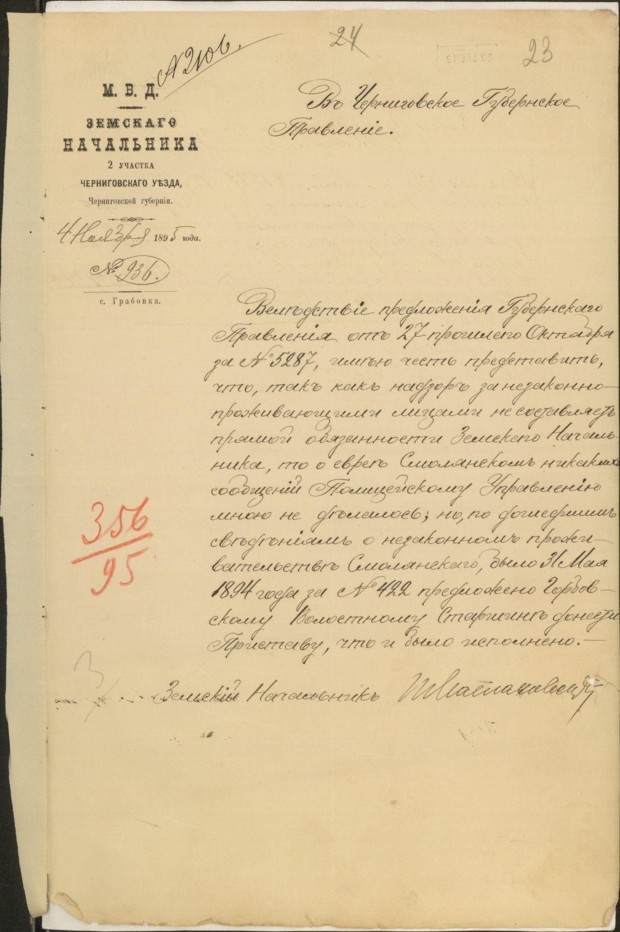 № 2106.
24
23
М. В. Д.
ЗЕМСКАГО
НАЧАЛЬНИКА
2 УЧАСТКА
ЧЕРНИГОВСКАГО УѢЗДА,
Черниговской губерніи.
4 Ноября 1895 года.
№ 936.
с. Грабовка.
Въ Черниговское Губернское
Правленіе.
Вслѣдствіе предложенія Губернскаго
Правленія отъ 27 прошлаго Октября
за № 5287, имѣю честь представить,
что, такъ какъ надзоръ за незаконно-
проживающими лицами не составляетъ
прямой обязанности Земскаго Началь-
ника, то о евреѣ Смолянскомъ никакихъ
сообщеній Полицейскому Управленію
мною не дѣлалось; но, по дошедшимъ
свѣдѣніямъ о незаконномъ прожи-
вательствѣ Смолянскаго, было 31 Мая
1894 года за № 422 предложено
скому Волостному Старшинѣ донести
Приставу, что и было исполнено.—
356
95
Земскій Начальникъ